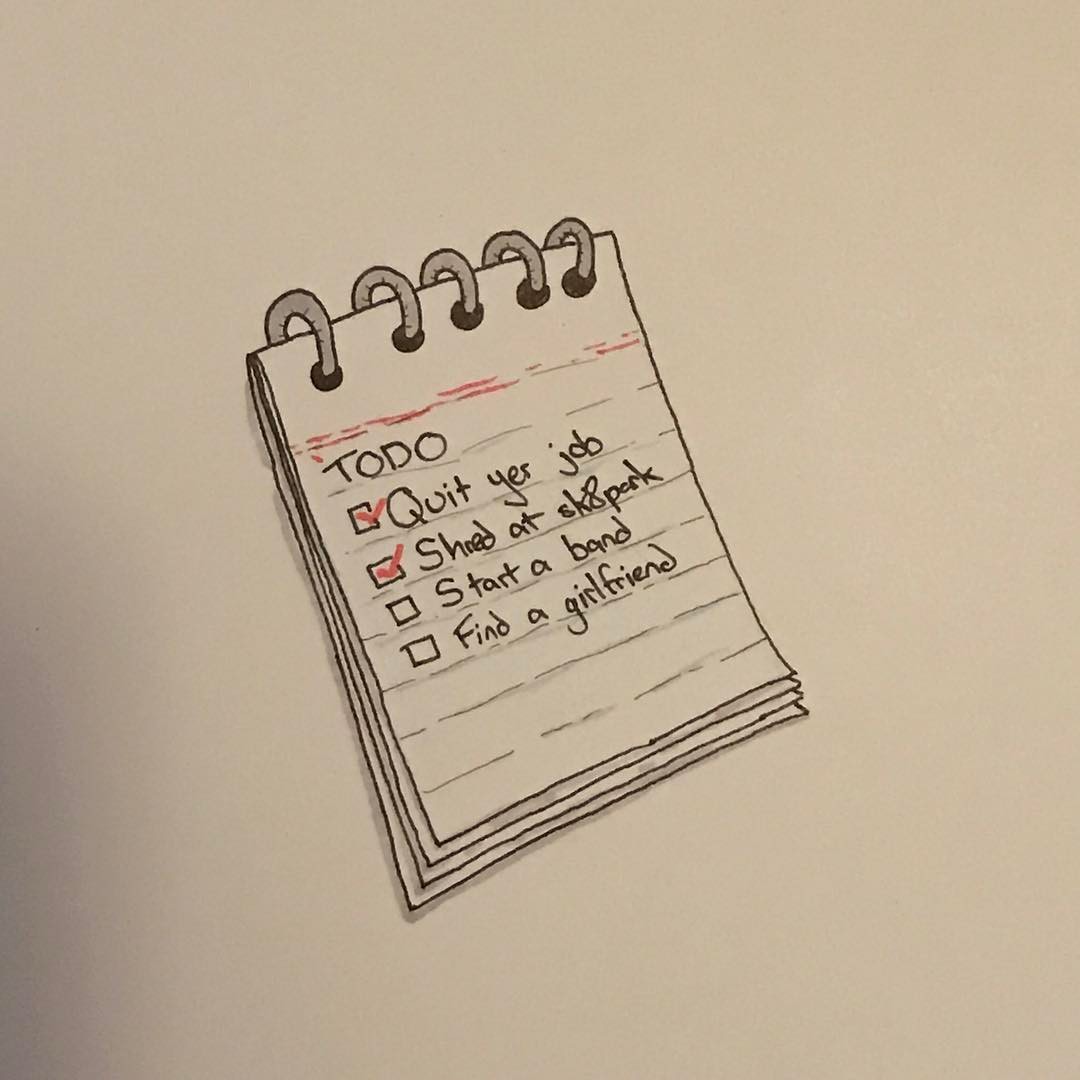 TODO
Quit yer job
Shred at sk8park
Start a band
Find a girlfriend